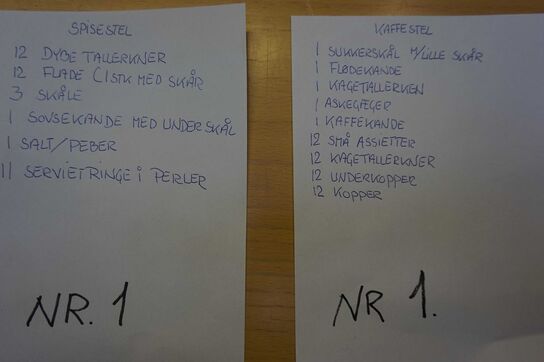 SPISESTEL
12 DYBE TALLERKNER
12 FLADE (1STK MED SKÅR
3 SKÅLE
1 SOVSEKANDE MED UNDERSKÅL
1 SALT/PEBER
11 SERVIETRINGE i PERLER
NR. 1
KAFFESTEL
1 SUKKERSKÅL M/LILLE SKÅR
1 FLØDEKANDE
1 KAGETALLERKEN
1 ASKEBÆGER
1 KAFFEKANDE
12 SMÅ ASSIETTER
12 KAGETALLERKNER
12 UNDERKOPPER
12 KOPPER
NR 1.